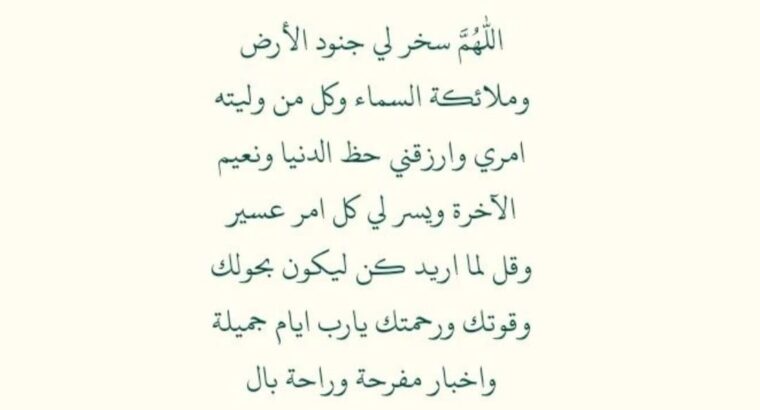 اللّٰهُمَّ سخر لي جنود الأرض
وملائكة السماء وكل من وليته
امري وارزقني حظ الدنيا ونعيم
الآخرة ويسر لي كل امر عسير
وقل لما اريد كن ليكون بحولك
وقوتك ورحمتك يارب ايام جميلة
واخبار مفرحة وراحة بال